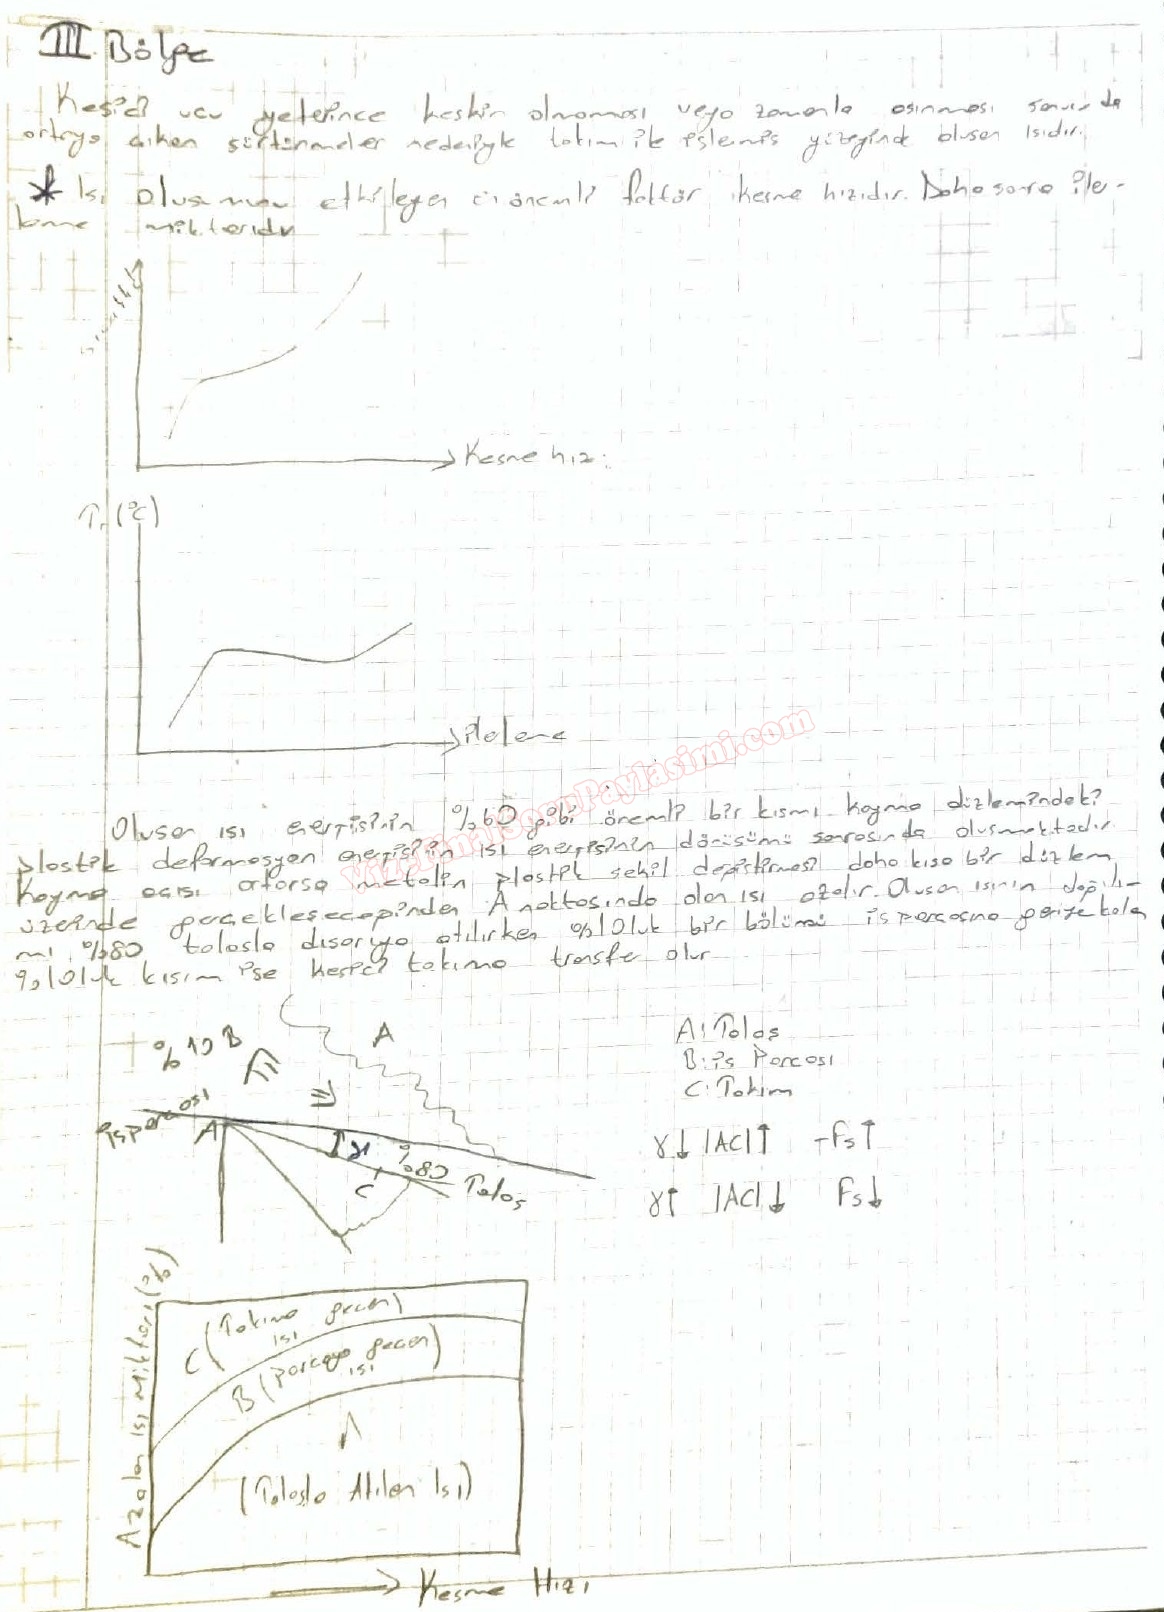 III. Bölge
Kesici ucu yeterince keskin olmaması veya zamanla aşınması sonucunda
ortaya çıkan sürtünmeler nedeniyle takım ile işlemiş yüzeyinde oluşan ısıdır.
* Isı oluşumunu etkileyen en önemli faktör kesme hızıdır. Daha sonra iler-
leme miktarıdır
Kesme hızı
T. (°C)
ilerleme
Oluşan ısı enerjisinin %60 gibi önemli bir kısmı kayma düzlemindeki
plastik deformasyon enerjisinin ısı enerjisinin dönüşümü sonrasında oluşmaktadır.
Kayma açısı artarsa metalin plastik şekil değiştirmesi daha kısa bir düzlem
üzerinde gerçekleşeceğinden A noktasında olan ısı azalır. Oluşan ısının dağılı-
mı %80 talaşla dışarıya atılırken %10luk bir bölümü iş parçasına geriye kalan
%10luk kısım ise kesici takıma transfer olur
A: Talaş
B: iş Parçası
C: Takım
% 10 B
A
iş parçası
A
γ
%80
C
Talaş
γ↓ |AC|↑ -Fs↑
γ↑ |AC|↓ Fs↓
Azalan ısı Miktarı (%)
C (Takıma geçen ısı)
B (parçaya geçen ısı)
A
(Talaşla Atılan Isı)
Kesme Hızı
VizeFinalSoruPaylasimi.com